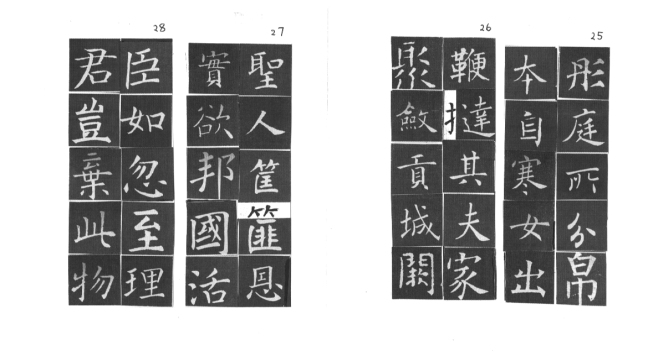 25
彤庭所分帛
本自寒女出
26
鞭撻其夫家
聚斂貢城闕
27
聖人筐篚恩
實欲邦國活
28
臣如忽至理
君豈棄此物